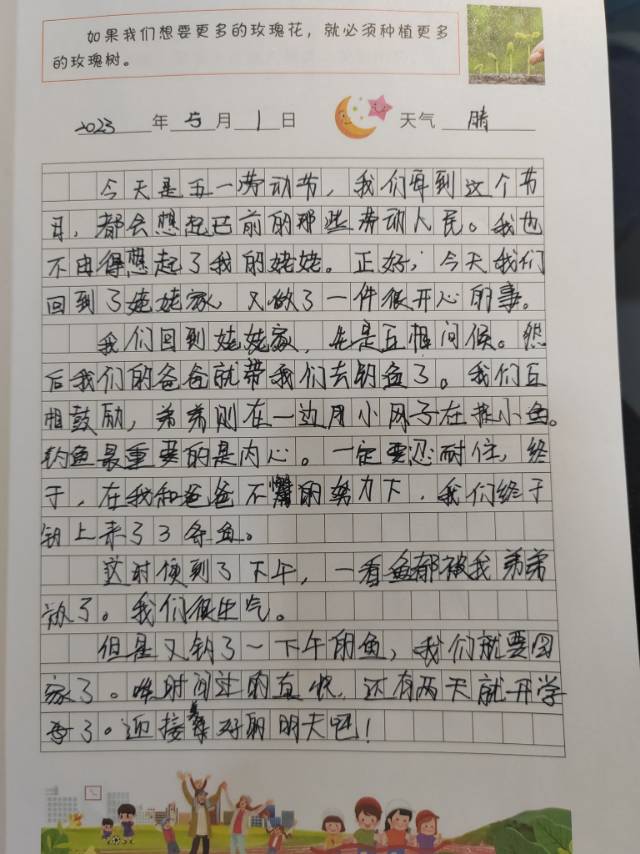 如果我们想要更多的玫瑰花，就必须种植更多
的玫瑰树。
2023年5月1日 天气 晴
今天是五一劳动节，我们每到这个节
日，都会想起已前的那些劳动人民。我也
不由得想起了我的姥姥。正好，今天我们
回到了姥姥家，又做了一件很开心的事。
我们回到姥姥家，先是互相问候。然
后我们的爸爸就带我们去钓鱼了。我们互
相鼓励，弟弟则在一边用小网子在捉小鱼。
钓鱼最重要的是内心。一定要忍耐住，终
于，在我和爸爸不懈的努力下，我们终于
钓上来了3条鱼。
这时便到了下午，一看鱼都被我弟弟
放了。我们很生气。
但是又钓了一下午的鱼，我们就要回
家了。时间过的真快，还有两天就开学
了。迎接美好的明天吧！